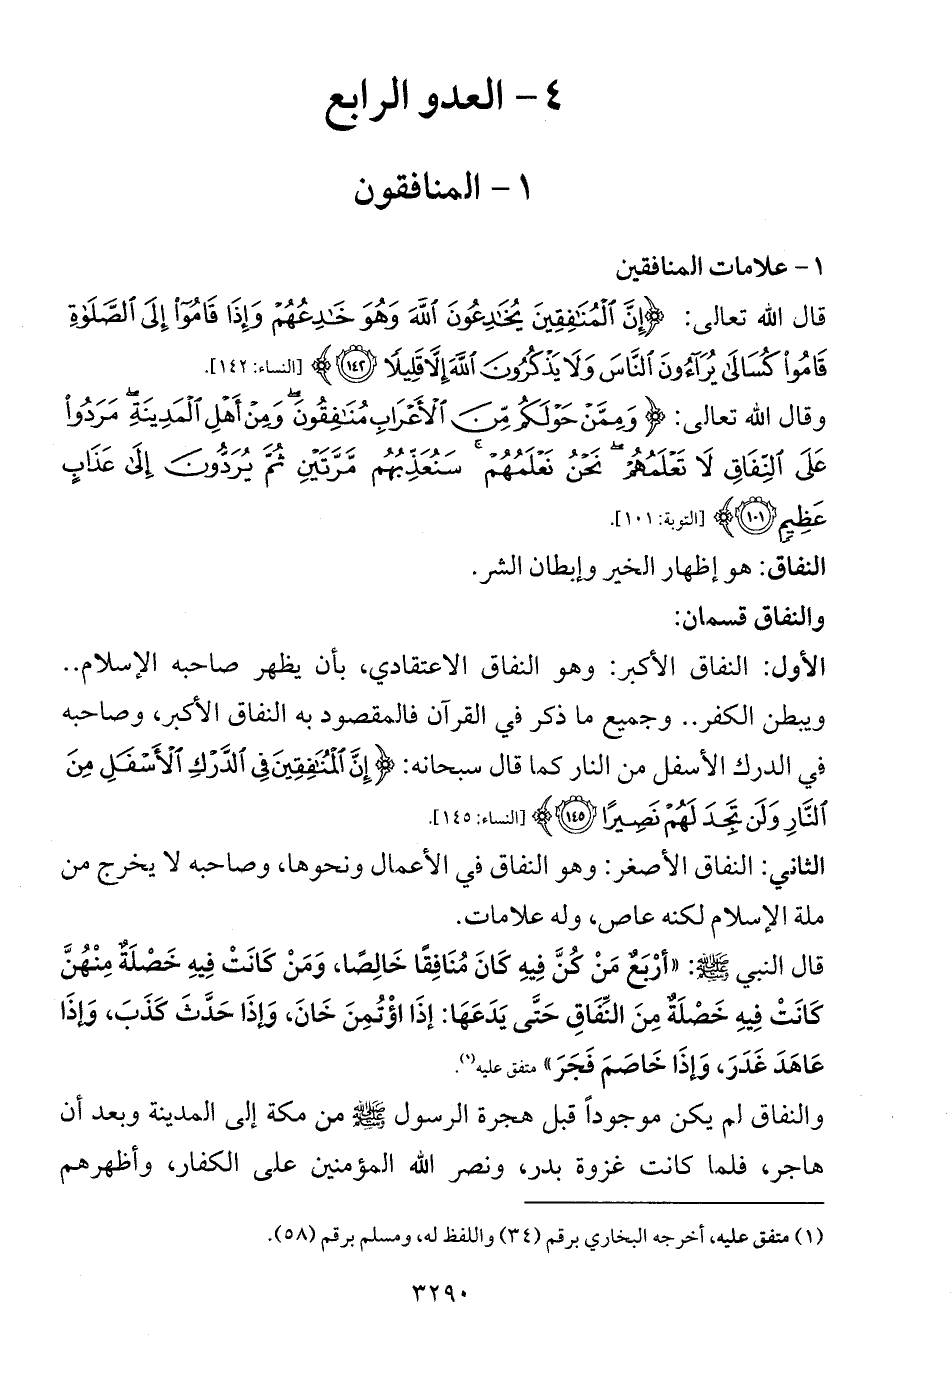 ٤ - العدو الرابع
١ - المنافقون
١ - علامات المنافقين
قال الله تعالى: ﴿إِنَّ ٱلْمُنَٰفِقِينَ يُخَٰدِعُونَ ٱللَّهَ وَهُوَ خَٰدِعُهُمْ وَإِذَا قَامُوٓا۟ إِلَى ٱلصَّلَوٰةِ
قَامُوا۟ كُسَالَىٰ يُرَآءُونَ ٱلنَّاسَ وَلَا يَذْكُرُونَ ٱللَّهَ إِلَّا قَلِيلًا ١٤٢﴾ [النساء: ١٤٢].
وقال الله تعالى: ﴿وَمِمَّنْ حَوْلَكُم مِّنَ ٱلْأَعْرَابِ مُنَٰفِقُونَۖ وَمِنْ أَهْلِ ٱلْمَدِينَةِۖ مَرَدُوا۟
عَلَى ٱلنِّفَاقِ لَا تَعْلَمُهُمْۖ نَحْنُ نَعْلَمُهُمْۚ سَنُعَذِّبُهُم مَّرَّتَيْنِ ثُمَّ يُرَدُّونَ إِلَىٰ عَذَابٍ
عَظِيمٍ ١٠١﴾ [التوبة: ١٠١].
النفاق: هو إظهار الخير وإبطان الشر.
والنفاق قسمان:
الأول: النفاق الأكبر: وهو النفاق الاعتقادي، بأن يظهر صاحبه الإسلام..
ويبطن الكفر.. وجميع ما ذكر في القرآن فالمقصود به النفاق الأكبر، وصاحبه
في الدرك الأسفل من النار كما قال سبحانه: ﴿إِنَّ ٱلْمُنَٰفِقِينَ فِى ٱلدَّرْكِ ٱلْأَسْفَلِ مِنَ
ٱلنَّارِ وَلَن تَجِدَ لَهُمْ نَصِيرًا ١٤٥﴾ [النساء: ١٤٥].
الثاني: النفاق الأصغر: وهو النفاق في الأعمال ونحوها، وصاحبه لا يخرج من
ملة الإسلام لكنه عاص، وله علامات.
قال النبي ﷺ: «أَرْبَعٌ مَنْ كُنَّ فِيهِ كَانَ مُنَافِقًا خَالِصًا، وَمَنْ كَانَتْ فِيهِ خَصْلَةٌ مِنْهُنَّ
كَانَتْ فِيهِ خَصْلَةٌ مِنَ النِّفَاقِ حَتَّى يَدَعَهَا: إِذَا اؤْتُمِنَ خَانَ، وَإِذَا حَدَّثَ كَذَبَ، وَإِذَا
عَاهَدَ غَدَرَ، وَإِذَا خَاصَمَ فَجَرَ» متفق عليه(١).
والنفاق لم يكن موجوداً قبل هجرة الرسول ﷺ من مكة إلى المدينة وبعد أن
هاجر، فلما كانت غزوة بدر، ونصر الله المؤمنين على الكفار، وأظهرهم
(١) متفق عليه، أخرجه البخاري برقم (٣٤) واللفظ له، ومسلم برقم (٥٨).
٣٢٩٠